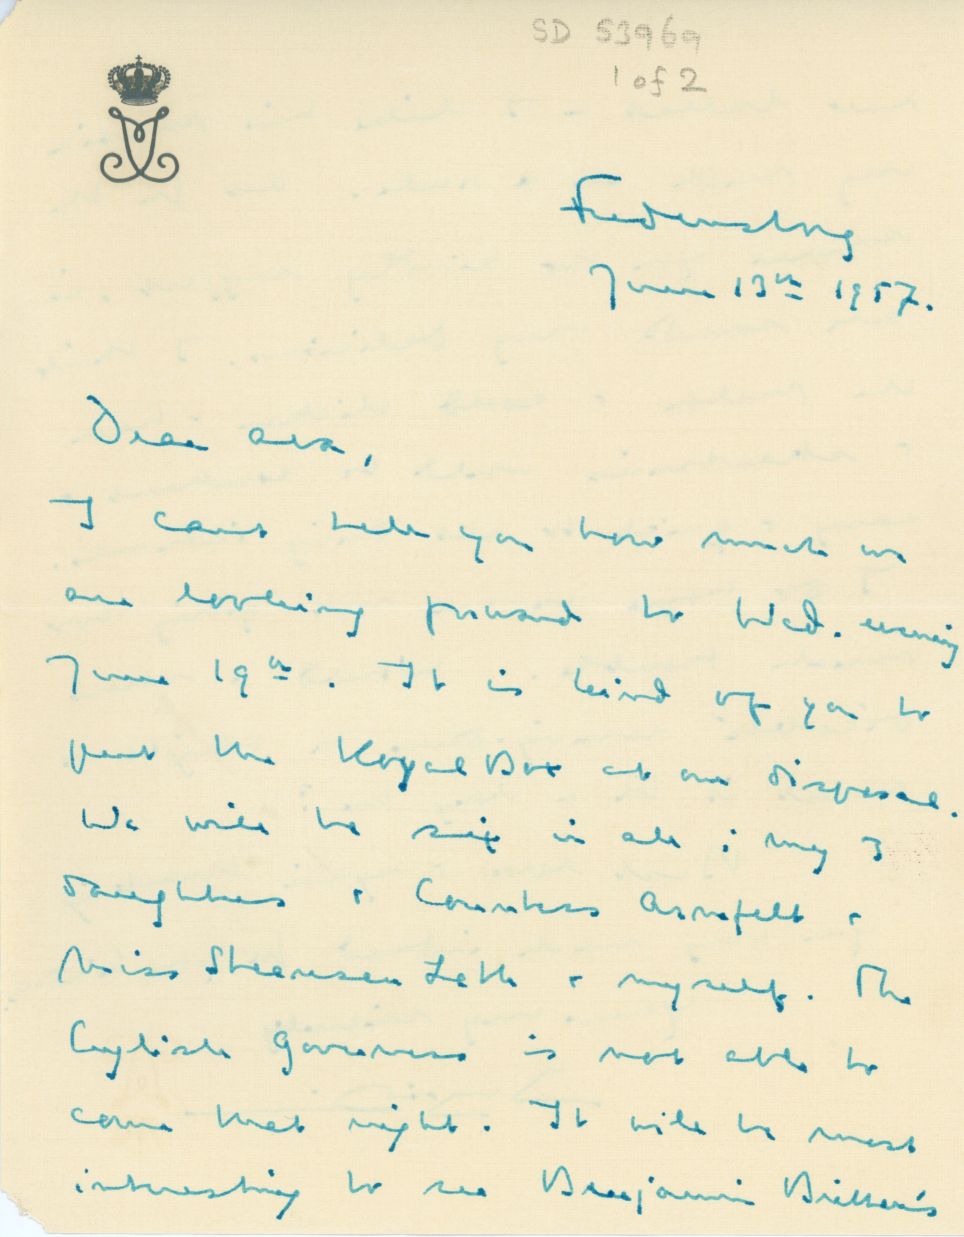 SD 53969
1 of 2
Fredensborg
June 13th 1957.
Dear Alex,
I can't tell you how much we
are looking forward to Wed. evening
June 19th. It is kind of you to
put the Royal Box at our disposal.
We will be six in all; my 3
daughters + Countess Armfelt +
Miss Steensen Leth + myself. The
English Governess is not able to
come that night. It will be most
interesting to see Benjamin Britten's